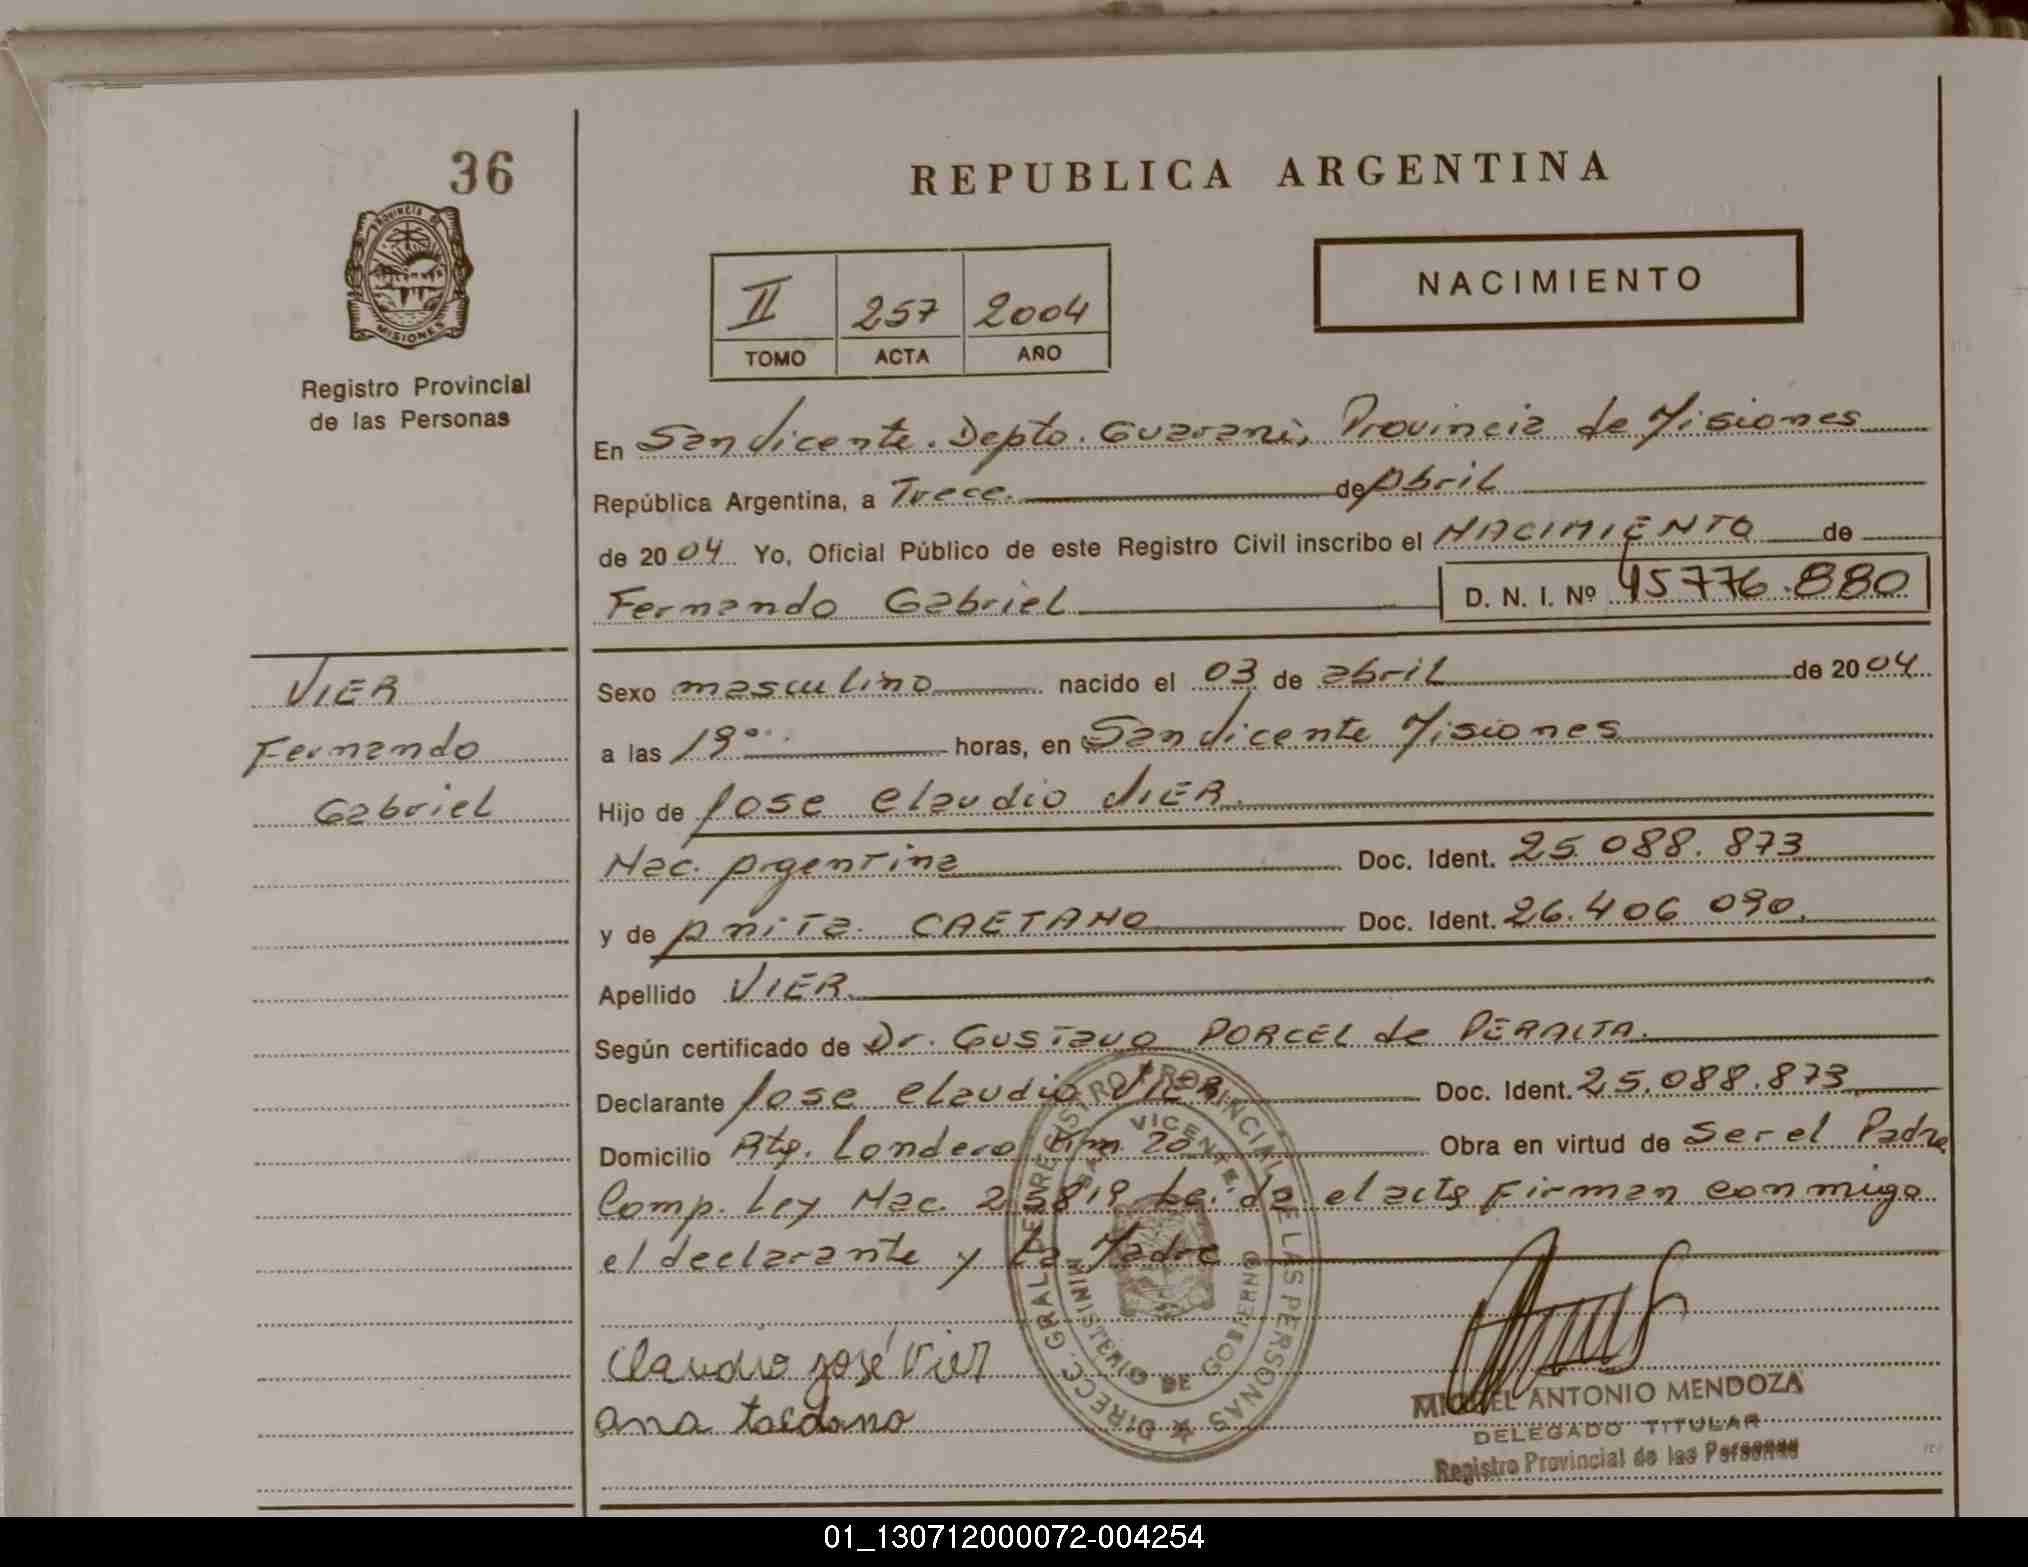 36
REPUBLICA ARGENTINA
PROVINCIA DE
MISIONES
Registro Provincial
de las Personas
NACIMIENTO
II 257 2004
TOMO ACTA AÑO
En San Vicente. Depto. Guarani, Provincia de Misiones
República Argentina, a Trece. de Abril
de 2004 Yo, Oficial Público de este Registro Civil inscribo el NACIMIENTO de
Fernando Gabriel D. N. I. Nº 45776.880
VIER
Fernando
Gabriel
Sexo masculino nacido el 03 de abril de 2004
a las 19°° horas, en San Vicente Misiones
Hijo de Jose Claudio VIER.
Nac. Argentina Doc. Ident. 25.088.873
y de Anita CAETANO Doc. Ident. 26.406 090.
Apellido VIER
Según certificado de Dr. Gustavo PORCEL de PERALTA.
Declarante Jose Claudio VIER Doc. Ident. 25.088.873
Domicilio Km. 20 Obra en virtud de Ser el Padre
Comp. Ley Nac. 25819 Leida el acta Firman conmigo
el declarante y La Madre
DIRECC. GRAL. DE REGISTRO PROVINCIAL DE LAS PERSONAS
SAN VICENTE
MINISTERIO DE GOBIERNO
Claudio José Vier
ana
MIGUEL ANTONIO MENDOZA
DELEGADO TITULAR
Registro Provincial de las Personas
01_130712000072-004254